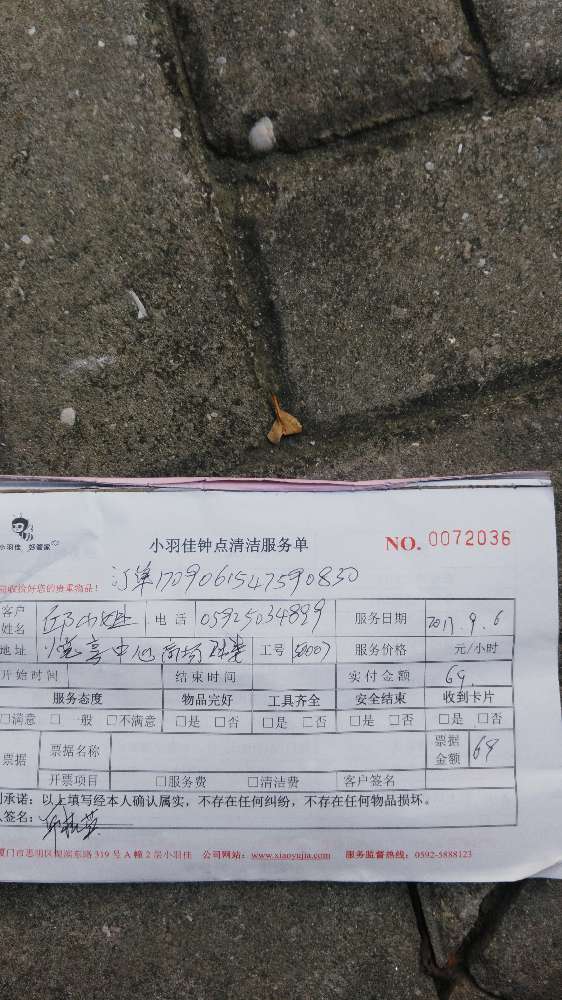 小羽佳 好管家
小羽佳钟点清洁服务单 NO. 0072036
收检好您的贵重物品!
订单1709061547590830
客户姓名 邱小姐 电话 05925034899 服务日期 2017.9.6
地址 中心商场 工号 服务价格 元/小时
开始时间 结束时间 实付金额 69
服务态度 物品完好 工具齐全 安全结束 收到卡片
□满意 □一般 □不满意 □是 □否 □是 □否 □是 □否 □是 □否
票据 票据名称 票据金额 69
开票项目 □服务费 □清洁费 客户签名
承诺:以上填写经本人确认属实,不存在任何纠纷,不存在任何物品损坏。
签名:
厦门市思明区湖滨东路 319 号 A 幢 2 层小羽佳 公司网站:www.xiaoyujia.com 服务监督热线:0592-5888123